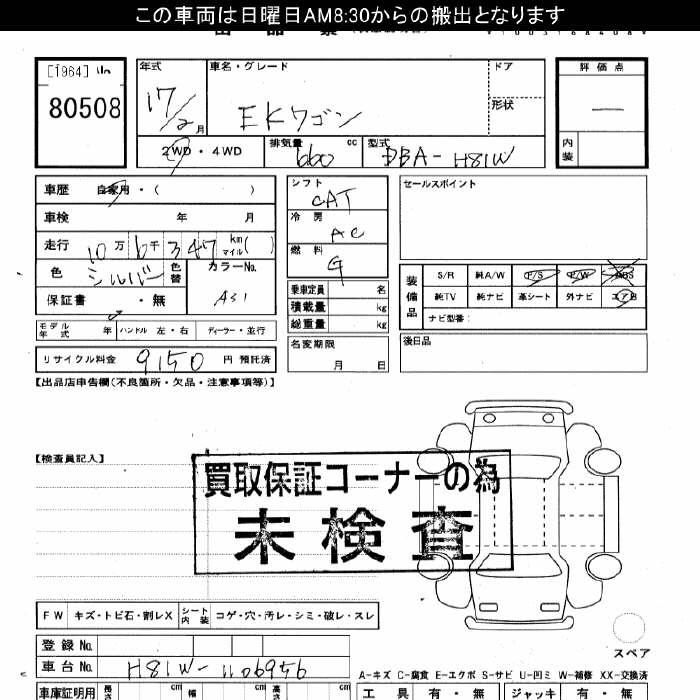 この車両は日曜日AM8:30からの搬出となります
[1964]
80508
年式 17/2月
車名・グレード EKワゴン
ドア
形状
評価点 —
内装
2WD・4WD
排気量 660 cc
型式 DBA-H81W
車歴 自家用・( )
車検 年 月
走行 10万6千347 km マイル( )
色 シルバー 色替
カラーNo. A31
保証書 ・無
モデル年式 年 ハンドル 左・右 ディーラー・並行
リサイクル料金 9150 円 預託済
シフト CAT
冷房 AC
燃料 G
乗車定員 名
積載量 kg
総重量 kg
名変期限 月 日
セールスポイント
装備品 S/R 純A/W P/S P/W ABS
純TV 純ナビ 革シート 外ナビ エアB
ナビ型番:
後日品
【出品店申告欄(不良箇所・欠品・注意事項等)】
【検査員記入】
買取保証コーナーの為
未検査
FW キズ・トビ石・割レX シート内装 コゲ・穴・汚レ・シミ・破レ・スレ
登録No.
車台No. H81W-1106956
スペア
A-キズ C-腐食 E-エクボ S-サビ U-凹ミ W-補修 XX-交換済
車庫証明用 長さ cm 幅 cm 高さ cm
工具 有・無 ジャッキ 有・無